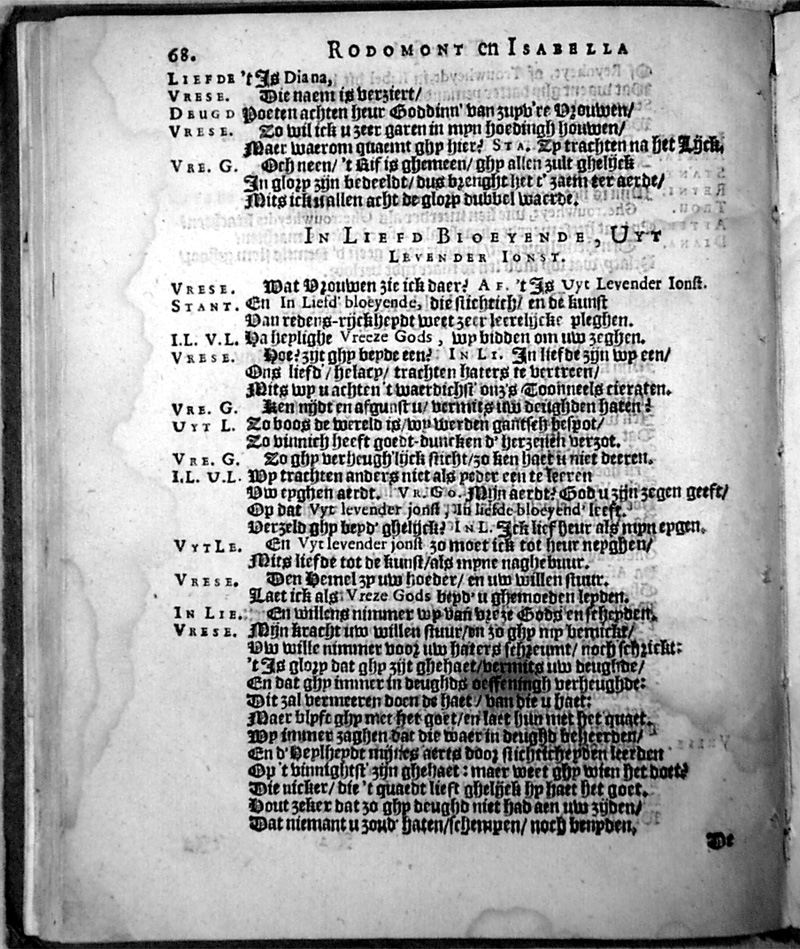 68. RODOMONT en ISABELLA
LIEFDE 't Js Diana,
VRESE. Die naem is verziert/
DEUGD Poeten achten heur Goddinn' van zuyv're Vrouwen/
VRESE. Zo wil ick u zeer garen in mijn hoedingh houwen/
Maer waerom quaemt ghy hier? STA. Zy trachten na het Lijck.
VRE. G. Och neen/ 't Kif is ghemeen/ ghy allen zult ghelijck
In glory zijn bedeeldt/ dus brenght het t' zaem ter aerde/
Mits ick u allen acht de glory dubbel waerde.
IN LIEFD BLOEYENDE, UYT
LEVENDER IONST.
VRESE. Wat Vrouwen zie ick daer? AF. 't Js Uyt Levender Ionst.
STANT. En In Liefd' bloeyende, die stichtich/ en de kunst
Van redens-rijckheydt weet zeer leerelijcke pleghen.
I.L. V.L. Ha heylighe Vreeze Gods, wy bidden om uw zeghen.
VRESE. Hoe? zijt ghy beyde een? IN LI. Jn liefde zijn wy een/
Ons liefd'/ helacy/ trachten haters te vertreen/
Mits wy u achten 't waerdichst' onz's Toonneels cieraten.
VRE. G. Ken nijdt en afgunst u/ vermits uw deughden haten?
UYT L. Zo boos de wereld is/ wy werden gantsch bespot/
Zo vinnich heeft goedt-duncken d' herzenen verzot.
VRE. G. Zo ghy verheugh'lijck sticht/ zo ken haet u niet deeren.
I.L. V.L. Wy trachten anders niet als yeder een te leeren
Uw eyghen aerdt. VR. GO. Mijn aerdt? God u zijn zegen geeft/
Op dat Uyt levender jonst, In liefde bloeyend' leeft.
Verzeld ghy beyd' ghelijck? IN L. Jck lief heur als mijn eygen.
VYT LE. En Uyt levender jonst zo moet ick tot heur neyghen/
Mits liefde tot de kunst/ als mijne naghebuur.
VRESE. Den Hemel zy uw hoeder/ en uw willen stuur.
Laet ick als Vreeze Gods beyd' u ghemoeden leyden.
IN LIE. En willens nimmer wy van vreze Gods en scheyden.
VRESE. Mijn kracht uw willen stuur/ en zo ghy my bemickt/
Uw wille nimmer voor uw haters schreumt/ noch schrickt:
't Js glory dat ghy zijt ghehaet/ vermits uw deughde/
En dat ghy immer in deughds oeffeningh verheughde:
Dit zal vermeeren doen de haet/ van die u haet:
Maer blyft ghy met het goet/ en laet hun met het quaet.
Wy immer zaghen dat die waer in deughd beheerden/
En d' Heylheydt mijnes aerts door stichticheyden leerden
Op 't vinnightst' zijn ghehaet: maer weet ghy wien het doet?
Die nicker/ die 't quaedt lieft ghelijck hy haet het goet.
Hout zeker dat zo ghy deughd niet had aen uw zijden/
Dat niemant u zoud' haten/ schempen/ noch benyden.
De